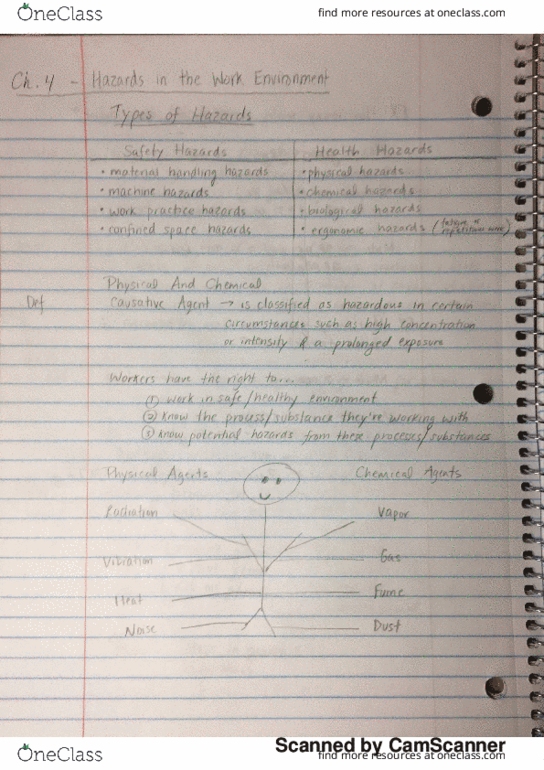 OneClass find more resources at oneclass.com
Ch. 4 - Hazards in the Work Environment
Types of Hazards
Safety Hazards Health Hazards
• material handling hazards • physical hazards
• machine hazards • chemical hazards
• work practice hazards • biological hazards
• confined space hazards • ergonomic hazards (fatigue &
repetitive
Physical And Chemical
Def Causative Agent → is classified as hazardous in certain
circumstances such as high concentration
or intensity & a prolonged exposure
Workers have the right to...
① work in safe/healthy environment
② Know the process/substance they're working with
③ Know potential hazards from these processes/substances
Physical Agents Chemical Agents
Radiation Vapor
Vibration Gas
Heat Fume
Noise Dust
Scanned by CamScanner
OneClass find more resources at oneclass.com